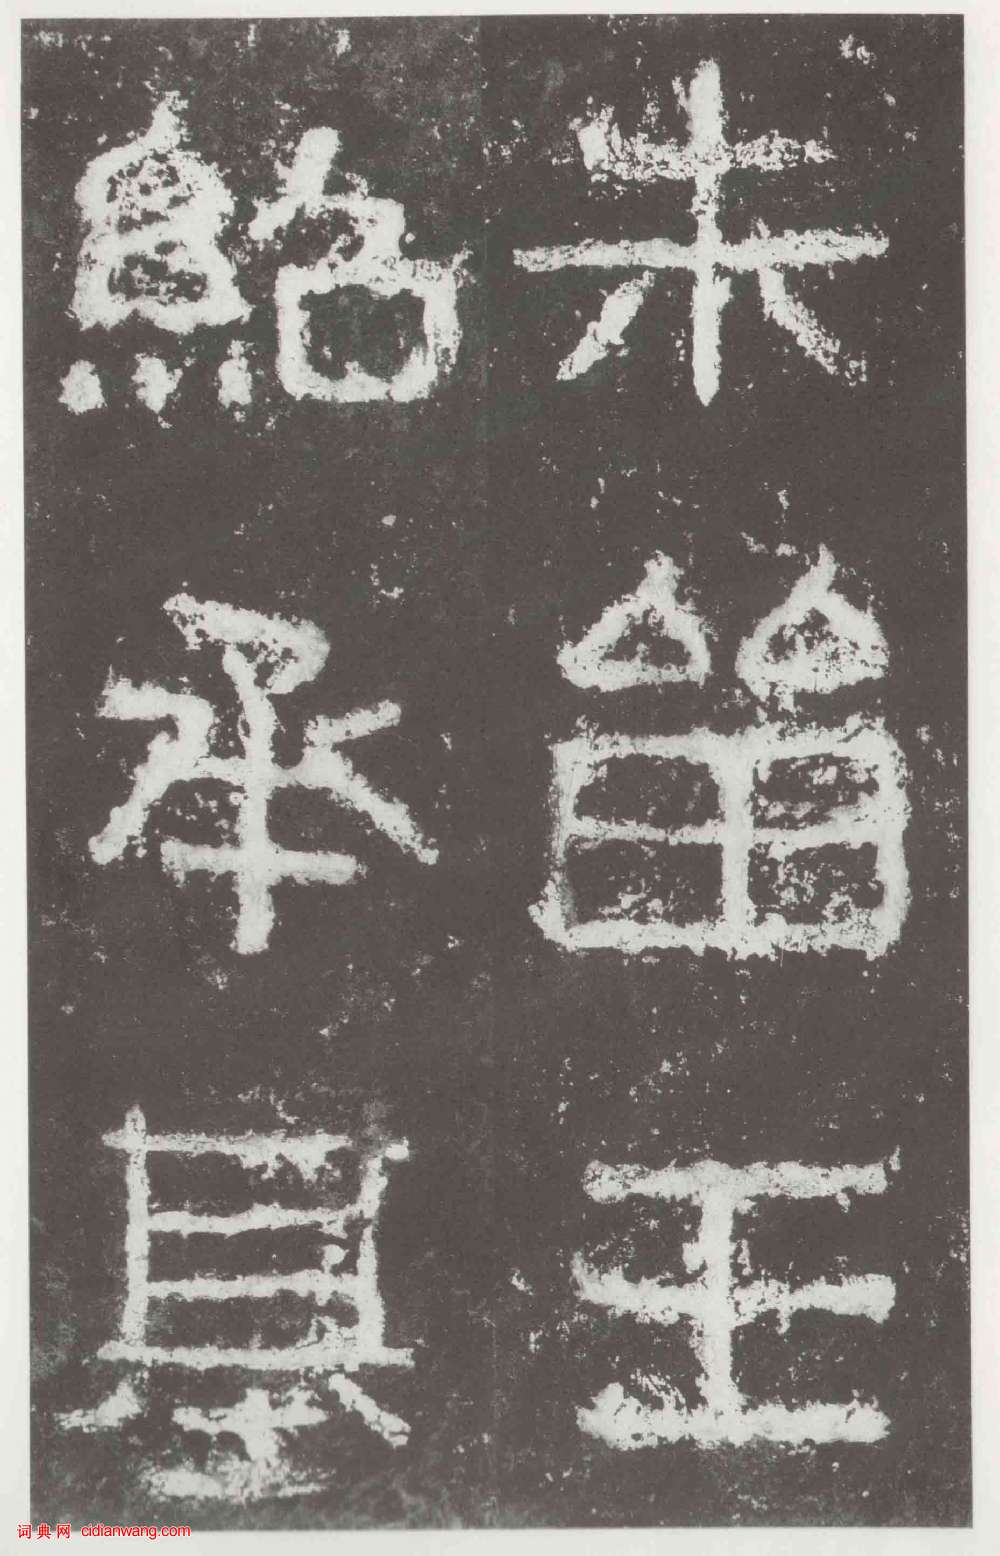 朱留王
紹承基
词典网 cidianwang.com